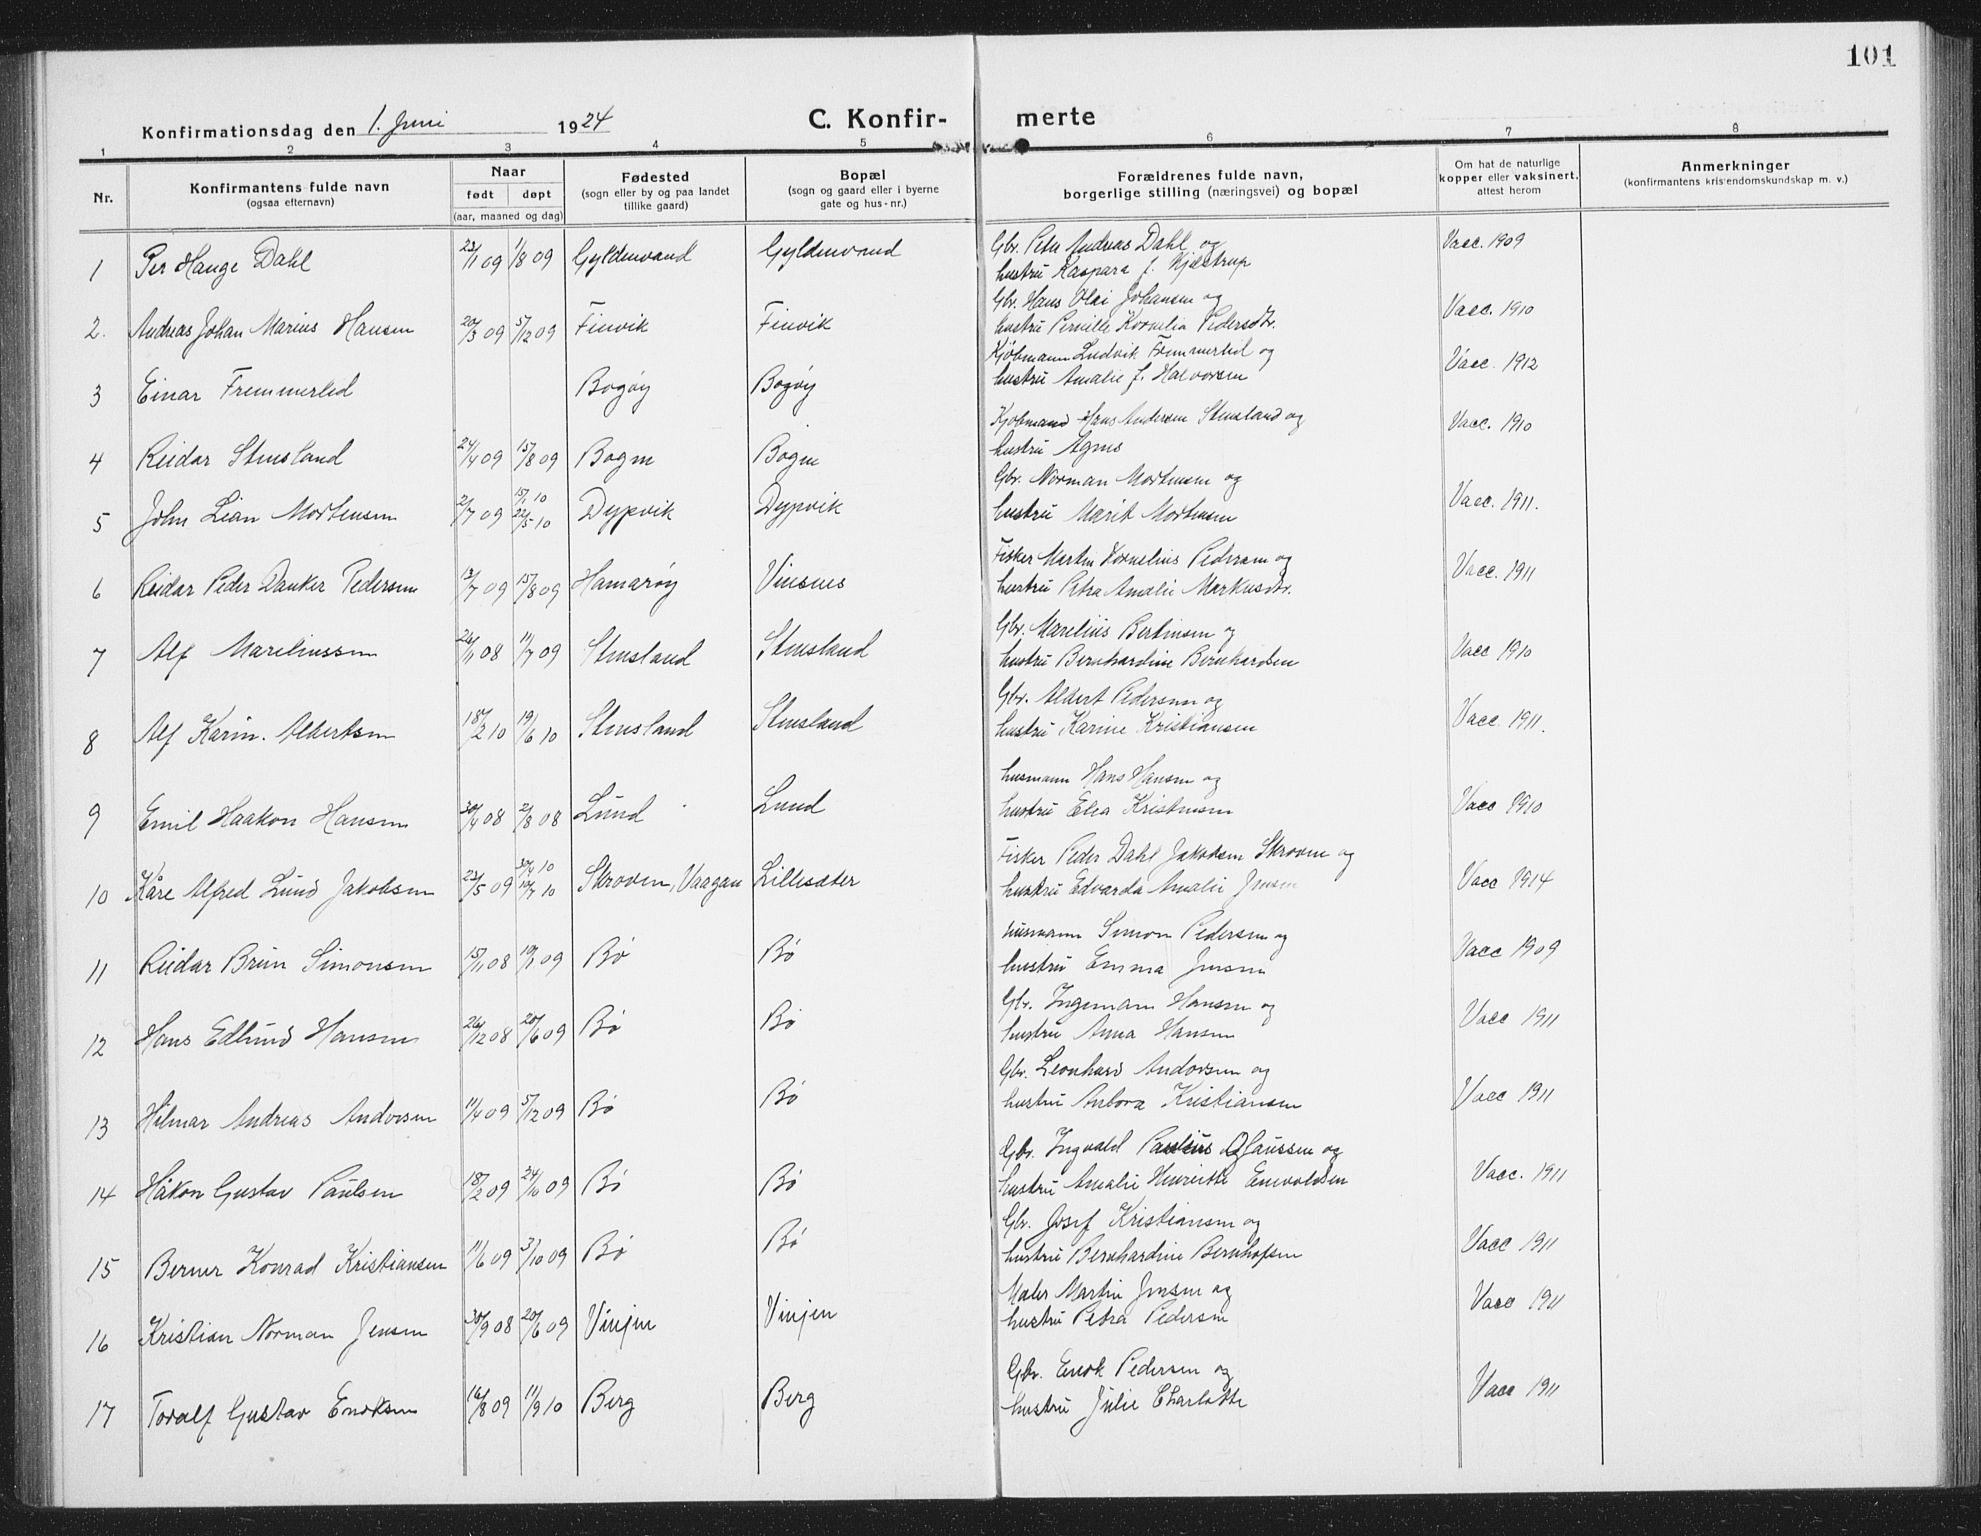 101
Konfirmationsdag den 1. Juni 1924
C. Konfir- merte
1 2 3 4 5 6 7 8
Nr.
Konfirmantens fulde navn
(ogsaa efternavn)
Naar
født døpt
(aar, maaned og dag)
Fødested
(sogn eller by og paa landet
tillike gaard)
Bopæl
(sogn og gaard eller i byerne
gate og hus-nr.)
Forældrenes fulde navn,
borgerlige stilling (næringsvei) og bopæl
Om hat de naturlige
kopper eller vaksinert,
attest herom
Anmerkninger
(konfirmantens kristendomskundskap m. v.)
Gbr. Peter Andreas Dahl og Vacc. 1909
1 Per Hauge Dahl 23/1 09 1/8 09 Gyldenvand Gyldenvand hustru Kaspara f. Kjelstrup
Gbr. Hans Olai Johansen og Vacc. 1910
2. Andreas Johan Marius Hansen 20/3 09 5/12 09 Finvik Finvik hustru Pernille Kornelia Pedersdtr.
Kjøbmann Ludvik Fremmerlid og Vacc. 1912
3 Einar Fremmerlid Bogøy Bogøy hustru Amalie f. Halvorsen
Kjøbmand Hans Andersen Stensland og Vacc. 1910
4 Reidar Stensland 24/4 09 15/8 09 Bogen Bogen hustru Agnes
Gbr. Norman Mortensen og Vacc. 1911.
5 John Lian Mortensen 2/7 09 15/1 10 22/5 10 Dypvik Dypvik hustru Marit Mortensen
Fisker Martin Kornelius Pedersen og Vacc. 1911
6 Reidar Peder Danker Pedersen 13/7 09 15/8 09 Hamarøy Vinsnes hustru Petra Amalie Markusdtr.
Gbr. Marelius Bertinsen og Vacc 1910
7 Alf Mareliussen 26/11 08 11/7 09 Stensland Stensland hustru Bernhardine Bernhardsen
Gbr. Albert Pedersen og Vacc. 1911.
8 Alf Karin. Albertsen 18/2 10 19/6 10 Stensland Stensland hustru Karine Kristiansen
husmann Hans Hansen og Vacc 1910
9 Emil Haakon Hansen 30/4 08 2/8 08 Lund Lund hustru Elea Kristensen
Fisker Peder Dahl Jakobsen Skroven og Vacc 1914
10 Kåre Alfred Lund Jakobsen 23/5 09 30/4 10 10/7 10 Skroven, Vaagan Lillesæter hustru Edvarda Amalie Jensen
husmann Simon Pedersen og Vacc 1909
11 Reidar Brun Simonsen 15/11 08 10/1 09 Bø Bø hustru Emma Jensen
Gbr. Ingemann Hansen og Vacc 1911
12 Hans Edlund Hansen 26/12 08 20/6 09 Bø Bø hustru Anna Hansen
Gbr. Leonhard Andorsen og Vacc 1911
13 Hilmar Andreas Andorsen 11/4 09 5/12 09 Bø Bø hustru Anbora Kristiansen
Gbr. Ingvald Paulius Olaussen og Vacc. 1911
14 Håkon Gustav Paulsen 18/2 09 24/10 09 Bø Bø hustru Amalie Henriette Enevoldsen
Gbr. Josef Kristiansen og Vacc 1911
15 Berner Konrad Kristiansen 11/6 09 3/10 09 Bø Bø hustru Bernhardine Bernhofsen
Maler Martin Jensen og Vacc 1911
16 Kristian Norman Jensen 30/9 08 20/6 09 Vinjen Vinjen hustru Petra Pedersen
Gbr. Enok Pedersen og Vacc 1911
17 Toralf Gustav Enoksen 16/8 09 11/9 10 Berg Berg hustru Julie Charlotte